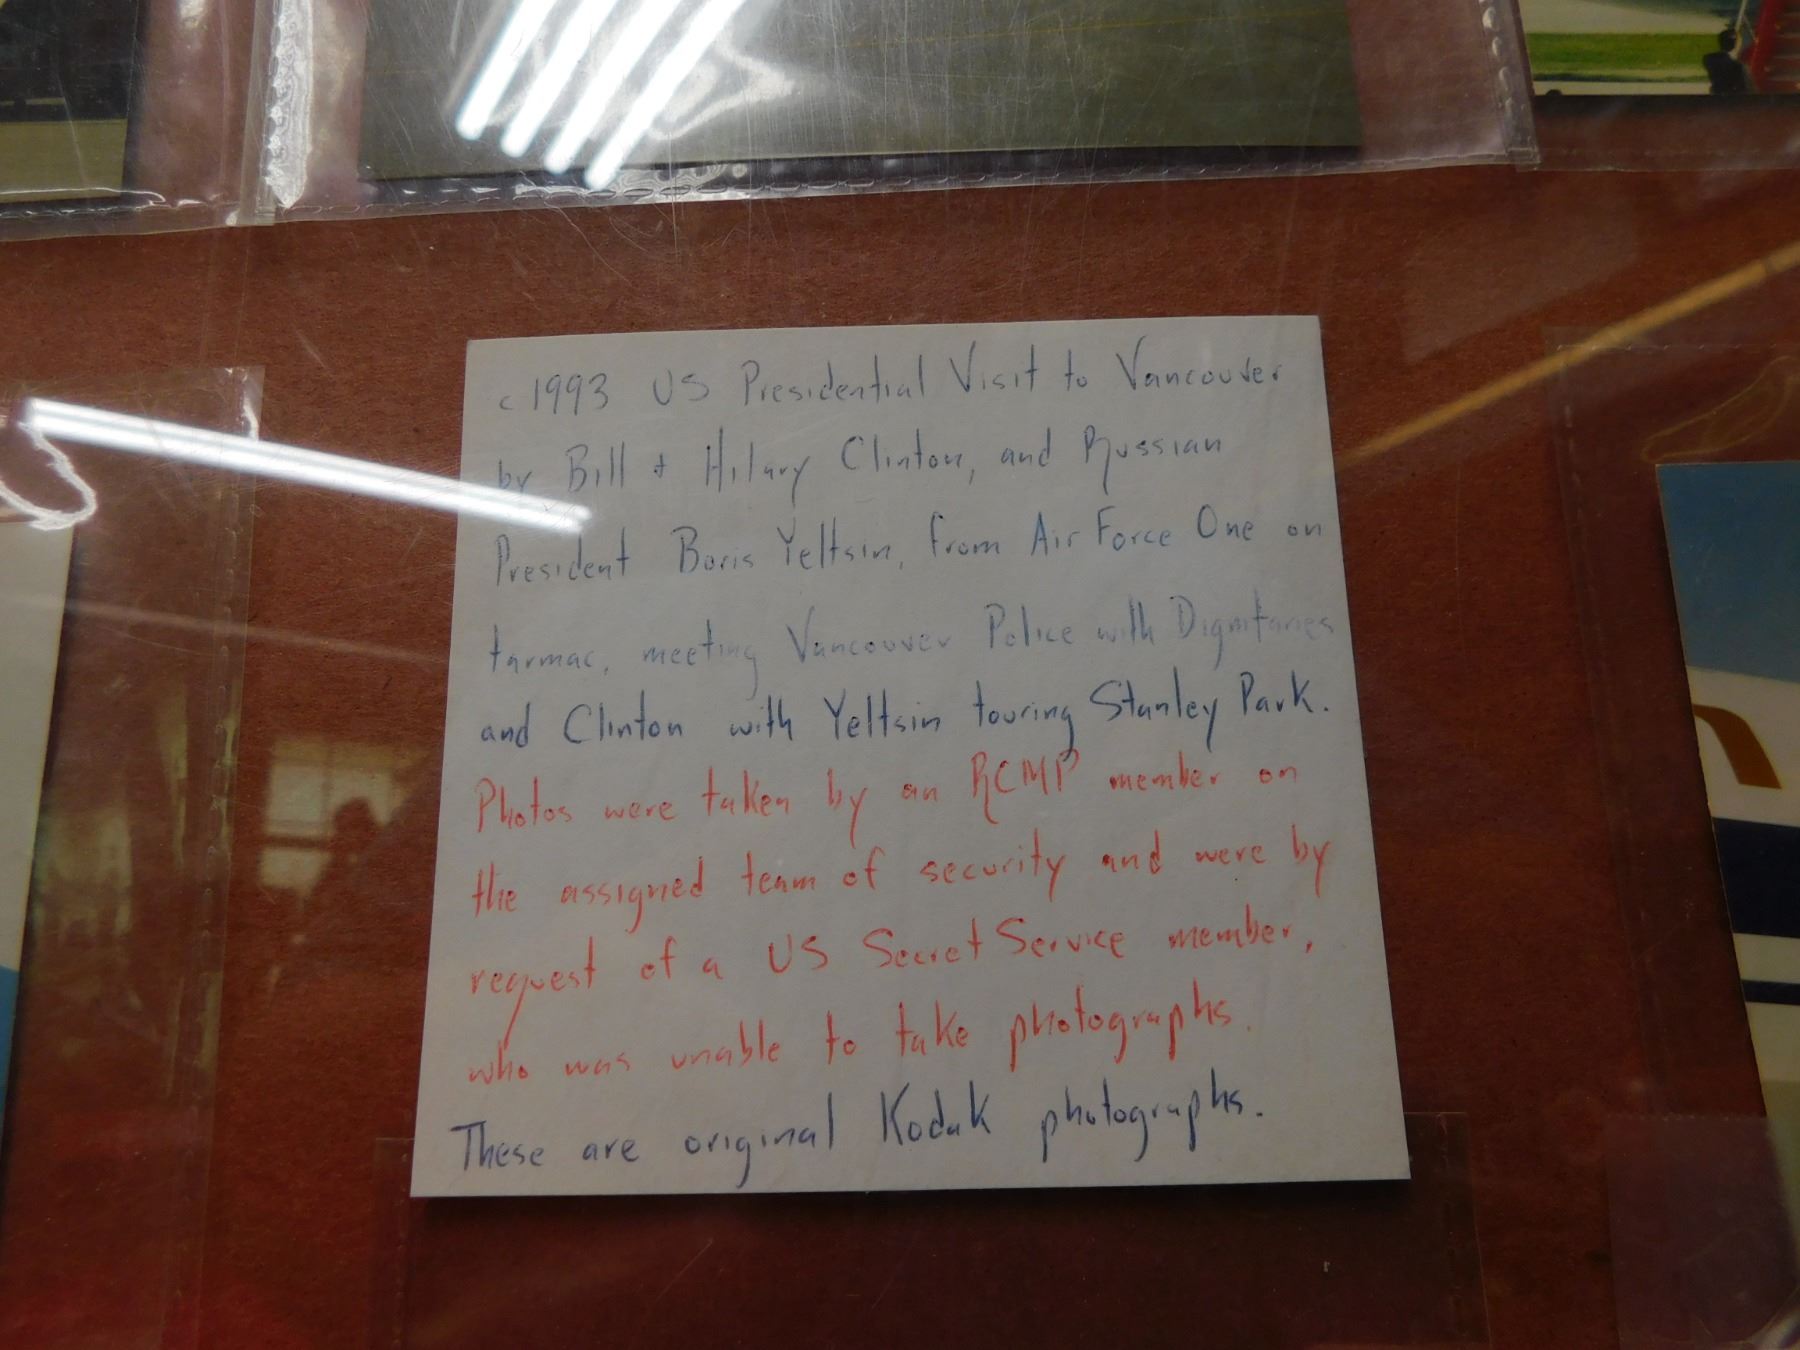 c 1993 US Presidential Visit to Vancouver
by Bill + Hilary Clinton, and Russian
President Boris Yeltsin, from Air Force One on
tarmac, meeting Vancouver Police with Dignitaries
and Clinton with Yeltsin touring Stanley Park.
Photos were taken by an RCMP member on
the assigned team of security and were by
request of a US Secret Service member,
who was unable to take photographs.
These are original Kodak photographs.